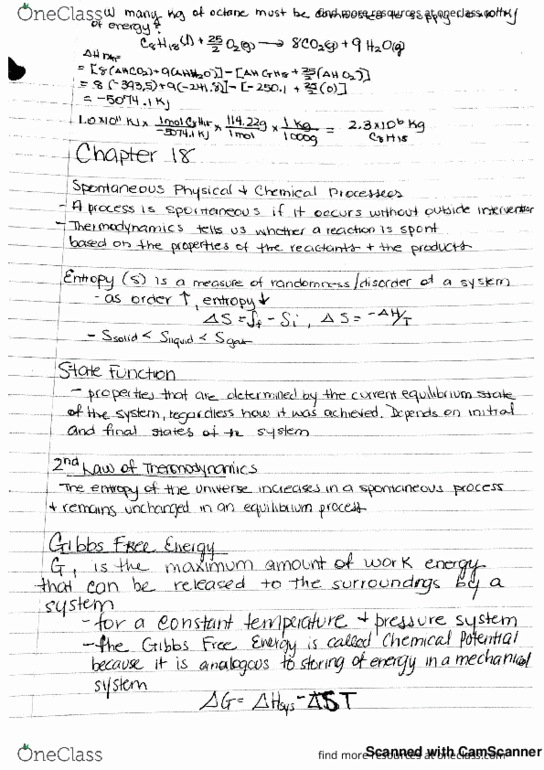 OneClass
w many kg of octane must be
of energy?
C8H18(l) + 25/2 O2(g) → 8CO2(g) + 9 H2O(g)
ΔHrxn
= [8(ΔHCO2)+9(ΔHH2O)] - [ΔH + 25/2(ΔHO2)]
= 8(-393.5)+9(-241.8)] - [-250.1 + 25/2(0)]
= -5074.1 KJ
1.0x10¹¹ KJ x 1mol C8H18/-5074.1 KJ x 114.22g/1mol x 1 Kg/1000g = 2.3x10⁶ Kg C8H18
Chapter 18
Spontaneous Physical + Chemical Processes
- A process is spontaneous if it occurs without outside intervention
- Thermodynamics tells us whether a reaction is spont
based on the properties of the reactants + the products
Entropy (S) is a measure of randomness/disorder of a system
- as order ↑, entropy ↓
ΔS = Sf - Si, ΔS = -ΔH/T
- Ssolid < Sliquid < Sgas
State Function
- properties that are determined by the current equilibrium state
of the system, regardless how it was achieved. Depends on initial
and final states of the system
2nd Law of Thermodynamics
The entropy of the universe increases in a spontaneous process
+ remains unchanged in an equilibrium process
Gibbs Free Energy
G, is the maximum amount of work energy
that can be released to the surroundings by a
system
- for a constant temperature + pressure system
- the Gibbs Free Energy is called Chemical Potential
because it is analogous to storing of energy in a mechanical
system
ΔG = ΔHsys - ΔST
OneClass
find more resources at oneclass.com
Scanned with CamScanner